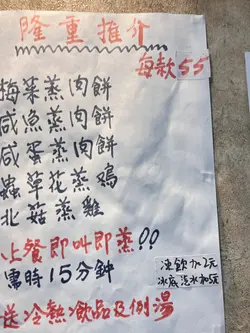 隆重推介
每款55
梅菜蒸肉餅
咸魚蒸肉餅
咸蛋蒸肉餅
蟲草花蒸鸡
北菇蒸雞
上餐即叫即蒸!!
需時15分鐘
凍飲加2元
冰底汽水加5元
送冷熱飲品及例湯